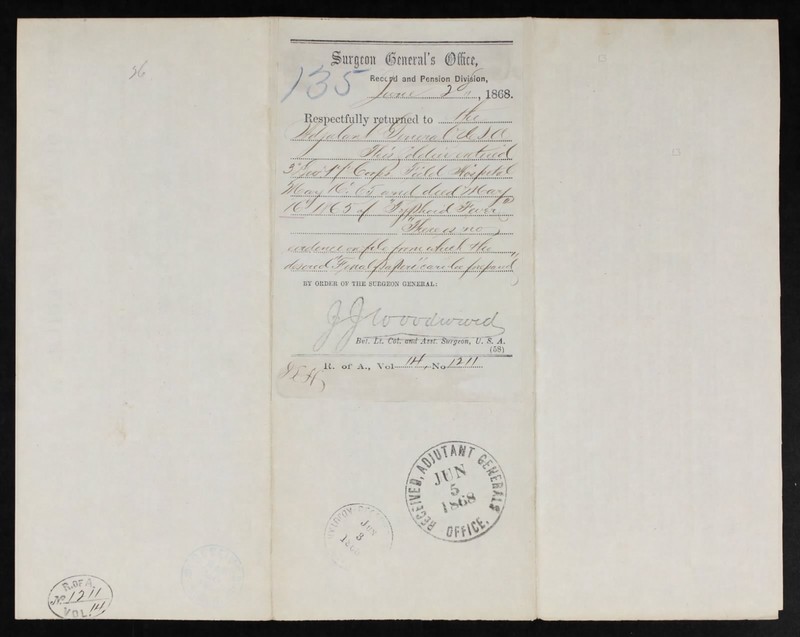 26
Surgeon General's Office,
135
Record and Pension Division,
June 2d, 1868.
Respectfully returned to the
Adjutant General U.S.A
This soldier entered
3" Div 4" Corps Field Hospital
May 10", 65 and died May
10" 1865 of "Typhoid Fever"
There is no
evidence on file from which the
desired "Final papers" can be prepared
BY ORDER OF THE SURGEON GENERAL:
J J Woodward
Bvt. Lt. Col. and Asst. Surgeon, U. S. A.
(58)
R. of A., Vol 14, No 1211
RECEIVER, ADJUTANT GENERALS OFFICE.
JUN
5
1868
JUN
3
R. OF A.
No. 1211
VOL. 14